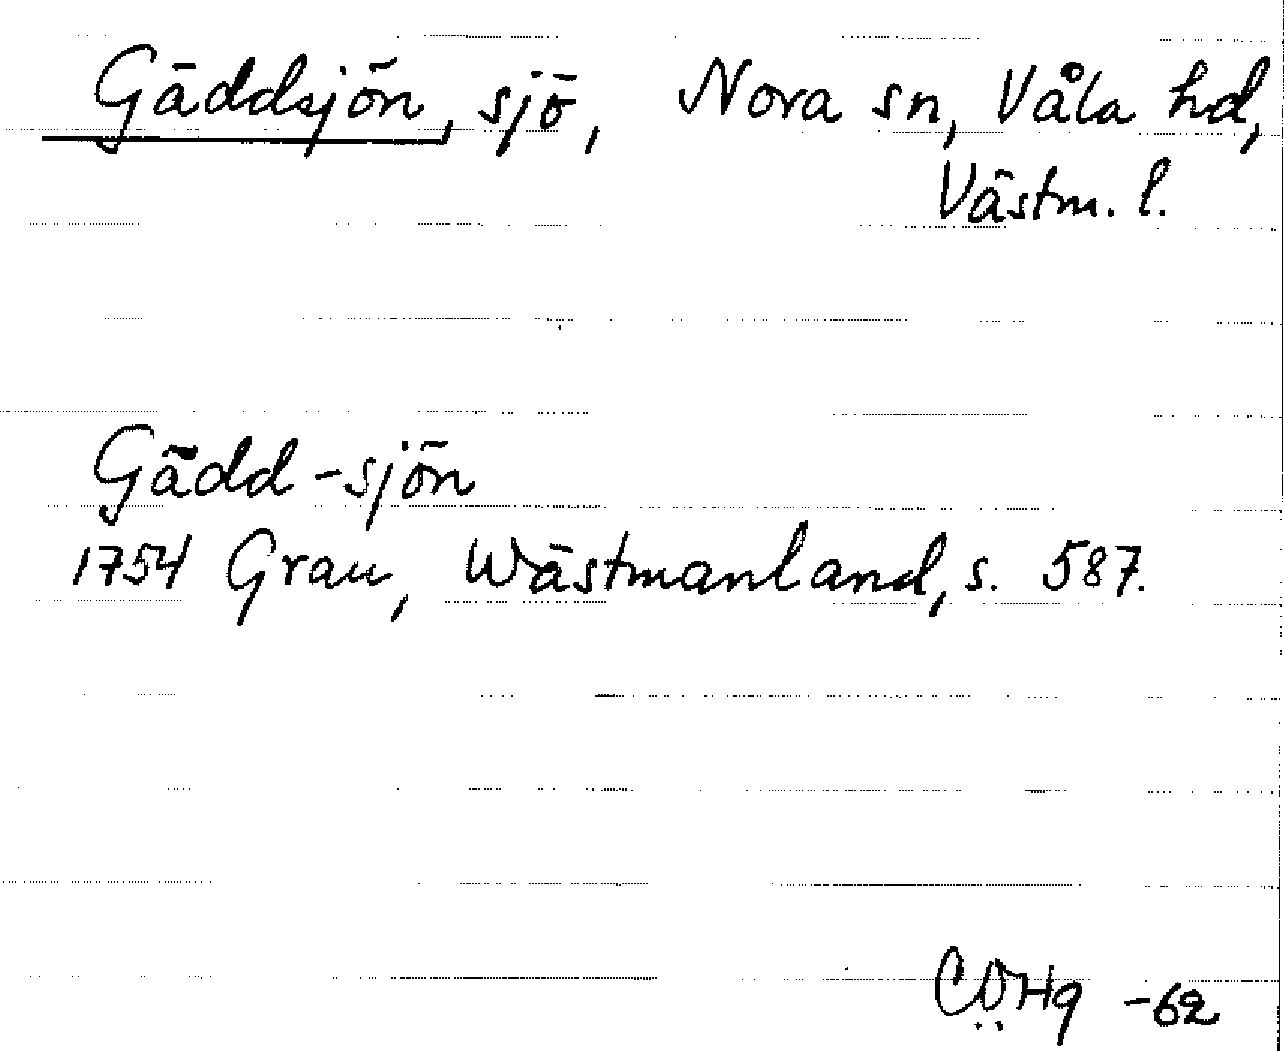 Gäddsjön, sjö, Nora sn, Våla hd,
Västm. l.
Gädd-sjön
1754 Grau, Wästmanland, s. 587.
CÖHg -62